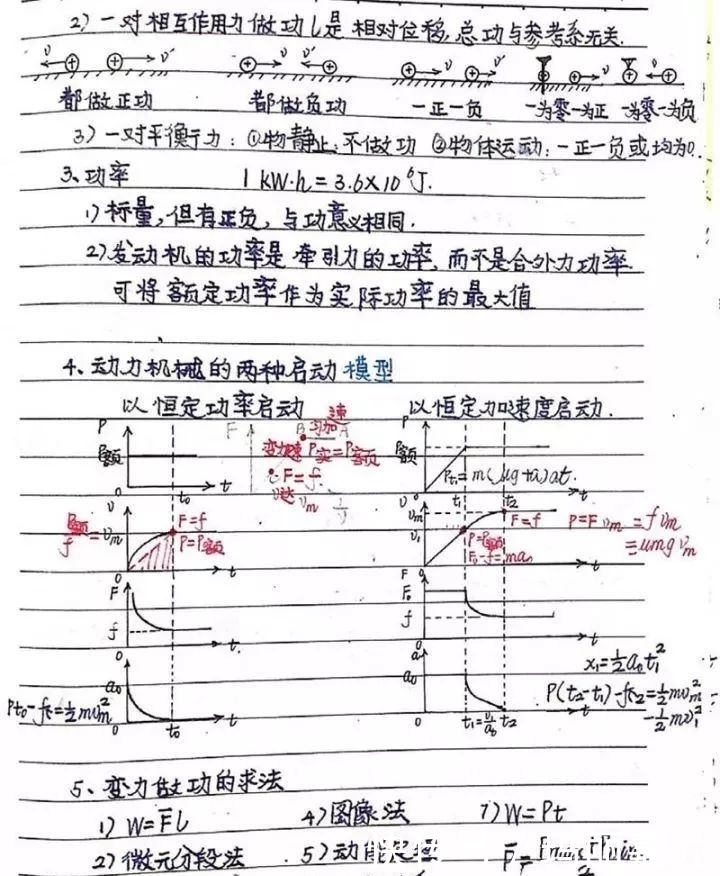 2) 一对相互作用力做功l是相对位移,总功与参考系无关.
v v' v' v v v
都做正功 都做负功 一正一负 一为零一为正 一为零一为负
3) 一对平衡力: ①物静止: 不做功 ②物体运动: 一正一负或均为0.
3、功率 1 kW·h = 3.6×10⁶J.
1) 标量, 但有正负, 与功意义相同.
2) 发动机的功率是牵引力的功率, 而不是合外力功率.
可将额定功率作为实际功率的最大值
4、动力机械的两种启动模型
以恒定功率启动 以恒定加速度启动.
P
P额
0 t₀ t
F B A
匀加速
变加速 P实=P额
∴F=f.
达 vm
1/v
P
P额
Pt₁=m(μg+a)at.
0 t₁ t
v
P额/f = vm
F=f
P=P额
0 t
v t₂
vm
v₁
F=f
P=P额
F₀-f=ma₀
0 t
P=Fvm=fvm
=μmgvm
F
f
0 t
F
F₀
f
0 t
a₀
0 t₀ t
Pt₀-fx=½mvm²
a
a₀
0 t₁=v₁/a₀ t₂
x₁=½a₀t₁²
P(t₂-t₁)-fx₂=½mvm²
-½mv₁²
5、变力做功的求法
1) W=F̄l 4) 图像法 7) W=Pt
2) 微元分段法 5)